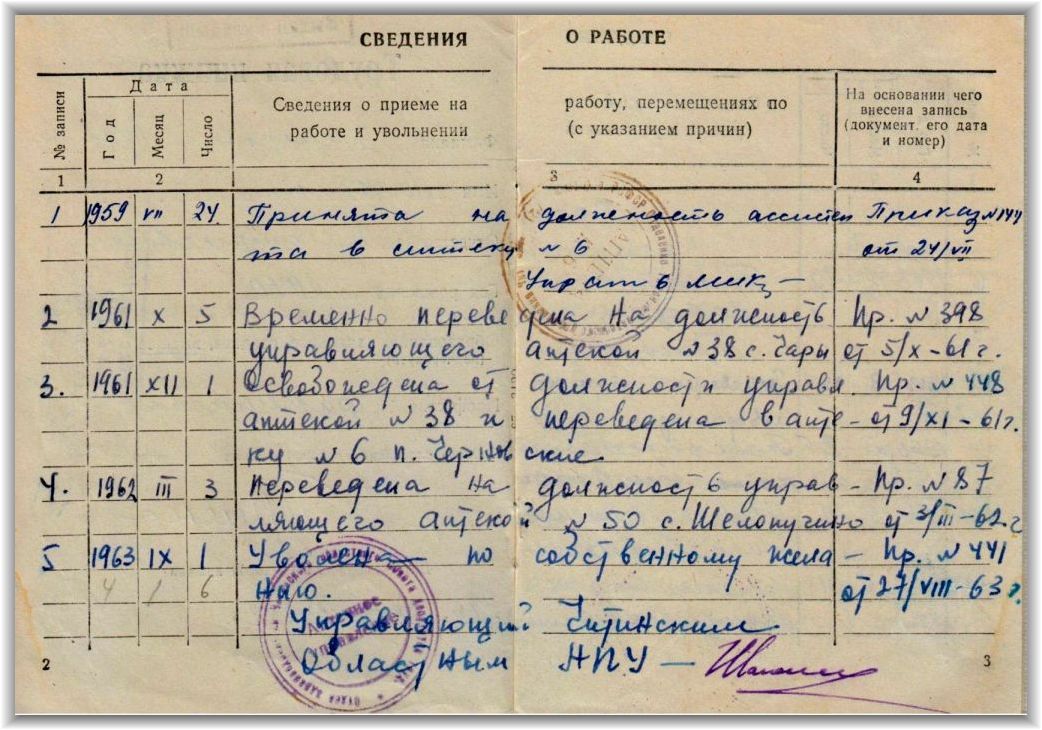 СВЕДЕНИЯ О РАБОТЕ
№ записи
Дата
Год
Месяц
Число
Сведения о приеме на работу, перемещениях по
работе и увольнении (с указанием причин)
На основании чего
внесена запись
(документ, его дата
и номер)
1 2 3 4
1 1959 VII 24. Принята на должность ассистен Приказ №144
та в аптеку № 6 от 24/VII
Упр апт 6
2 1961 X 5 Временно переведена на должность Пр. № 398
управляющего аптекой №38 с. Чары от 5/X-61 г.
3. 1961 XII 1 Освобождена от должности управл. Пр. № 448
аптекой № 38 и переведена в апте- от 9/XI-61г.
ку № 6 п. Черновские.
4. 1962 III 3 Переведена на должность управ- Пр. № 87
ляющего аптекой № 50 с. Шелопугино от 3/III-62.г
5 1963 IX 1 Уволена по собственному жела- Пр. № 441
4 1 6 нию. от 27/VIII-63 г.
Управляющий Читинским
Областным АПУ —
2 3